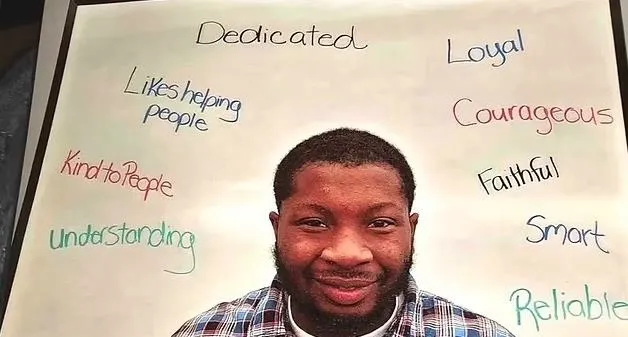 Dedicated
Loyal
Likes helping
people
Courageous
Kind to People
Faithful
understanding
Smart
Reliable